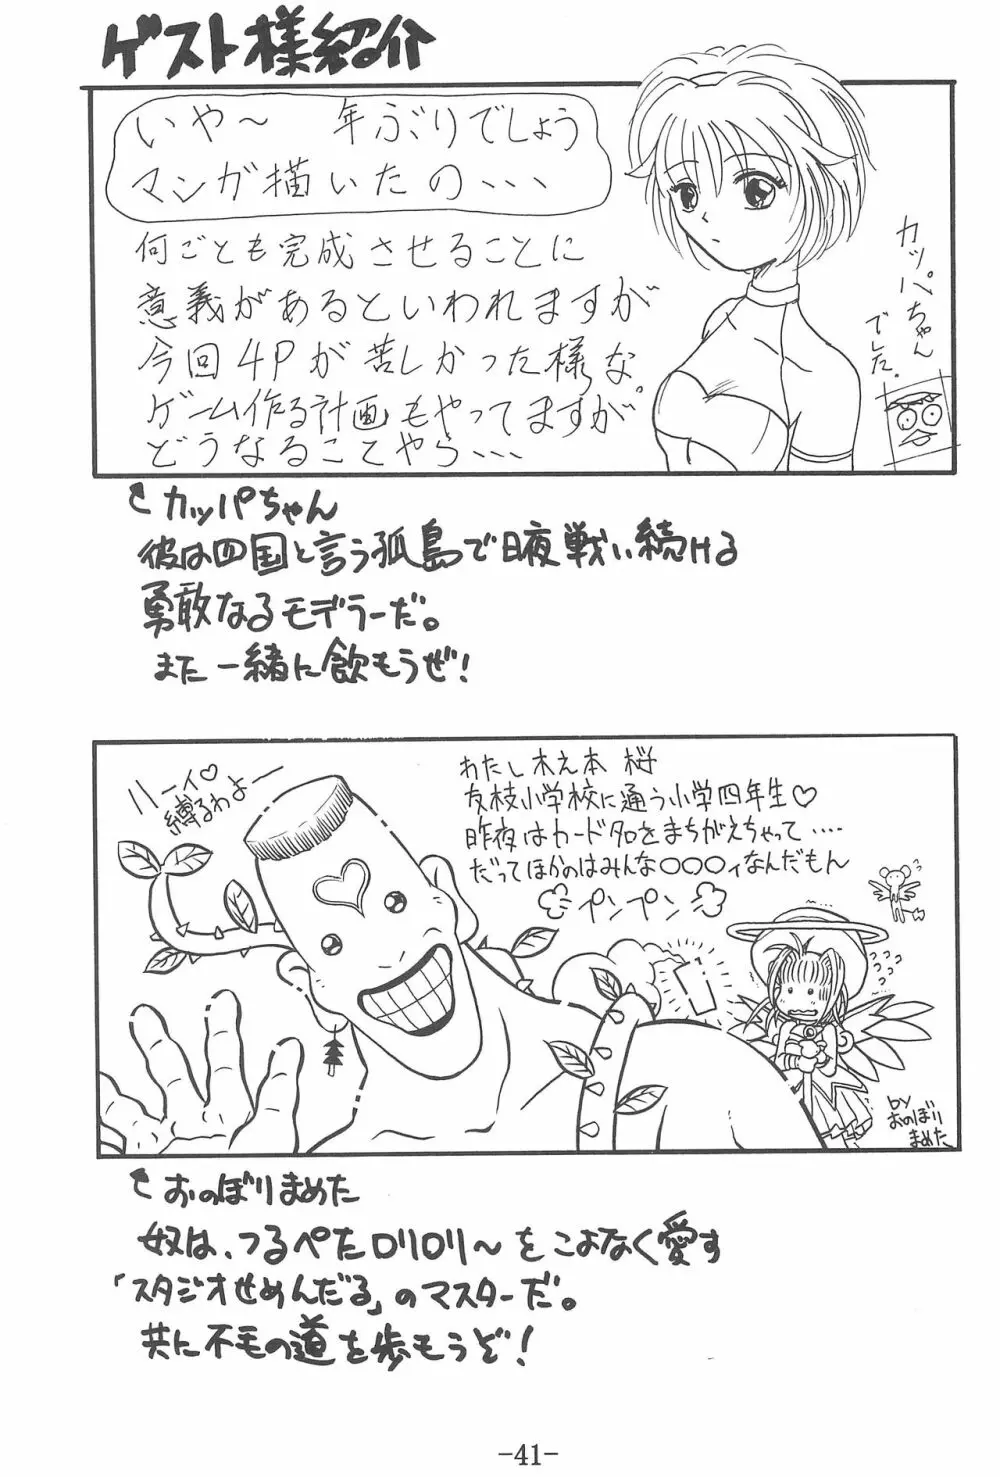 ゲスト様紹介
いや～　年ぶりでしょう
マンガ描いたの、、、
何ごとも完成させることに
意義があるといわれますが
今回4Pが苦しかった様な。
ゲーム作る計画もやってますが
どうなることやら、、、
カッパちゃん
でした。
カッパちゃん
彼は四国と言う孤島で日夜戦い続ける
勇敢なるモデラーだ。
また一緒に飲もうぜ!
ハーイ♡
縛るわよー
わたし木之本 桜
友枝小学校に通う小学四年生♡
昨夜はカード名をまちがえちゃって‥‥
だってほかのはみんな○○○ィなんだもん
プンプン
by
おのぼり
まめた
おのぼりまめた
奴は、つるぺたロリロリ～をこよなく愛す
「スタジオせめんだる」のマスターだ。
共に不毛の道を歩もうぞ!
-41-